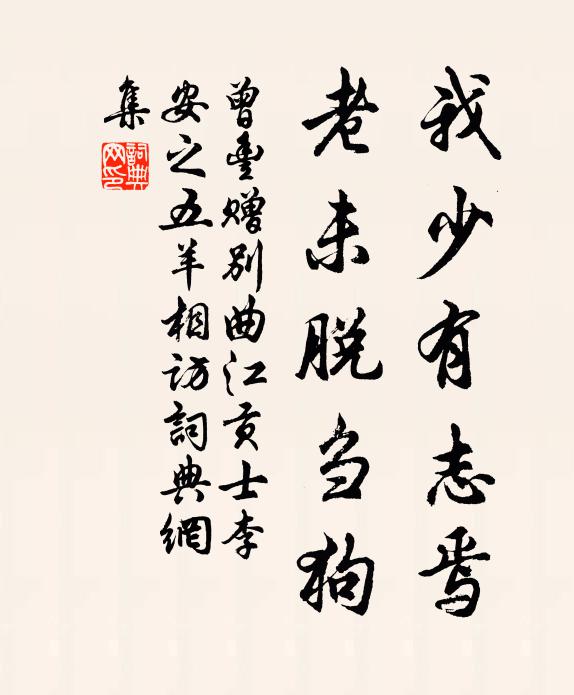 我少有志焉
老未脱刍狗
曾豊赠别曲江贡士李
安之五羊相访詞典網
集
詞典
网印